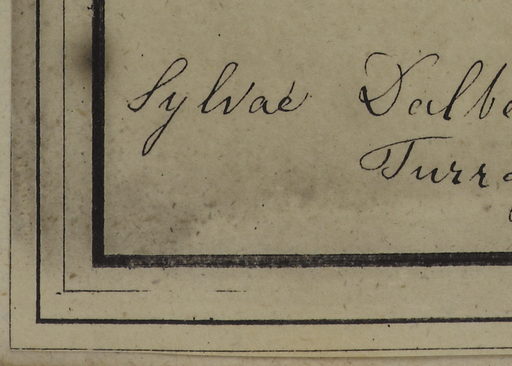 Sylvaé Dalb
Turr